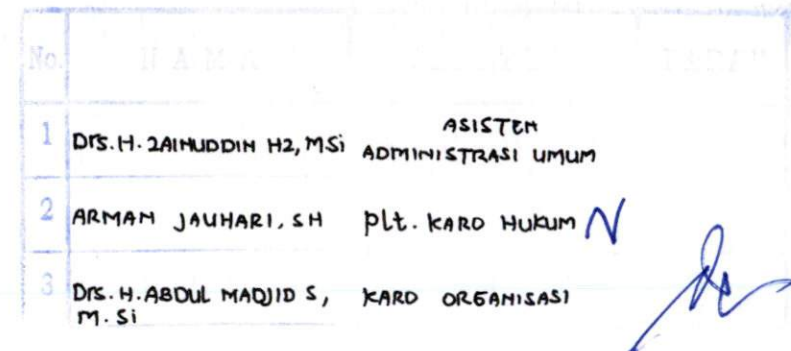 No. N A M A
1 Drs. H. ZAINUDDIN HZ, MSi ASISTEN ADMINISTRASI UMUM
2 ARMAN JAUHARI, SH Plt. KARO HUKUM
3 Drs. H. ABDUL MADJID S, M. Si KARO ORGANISASI